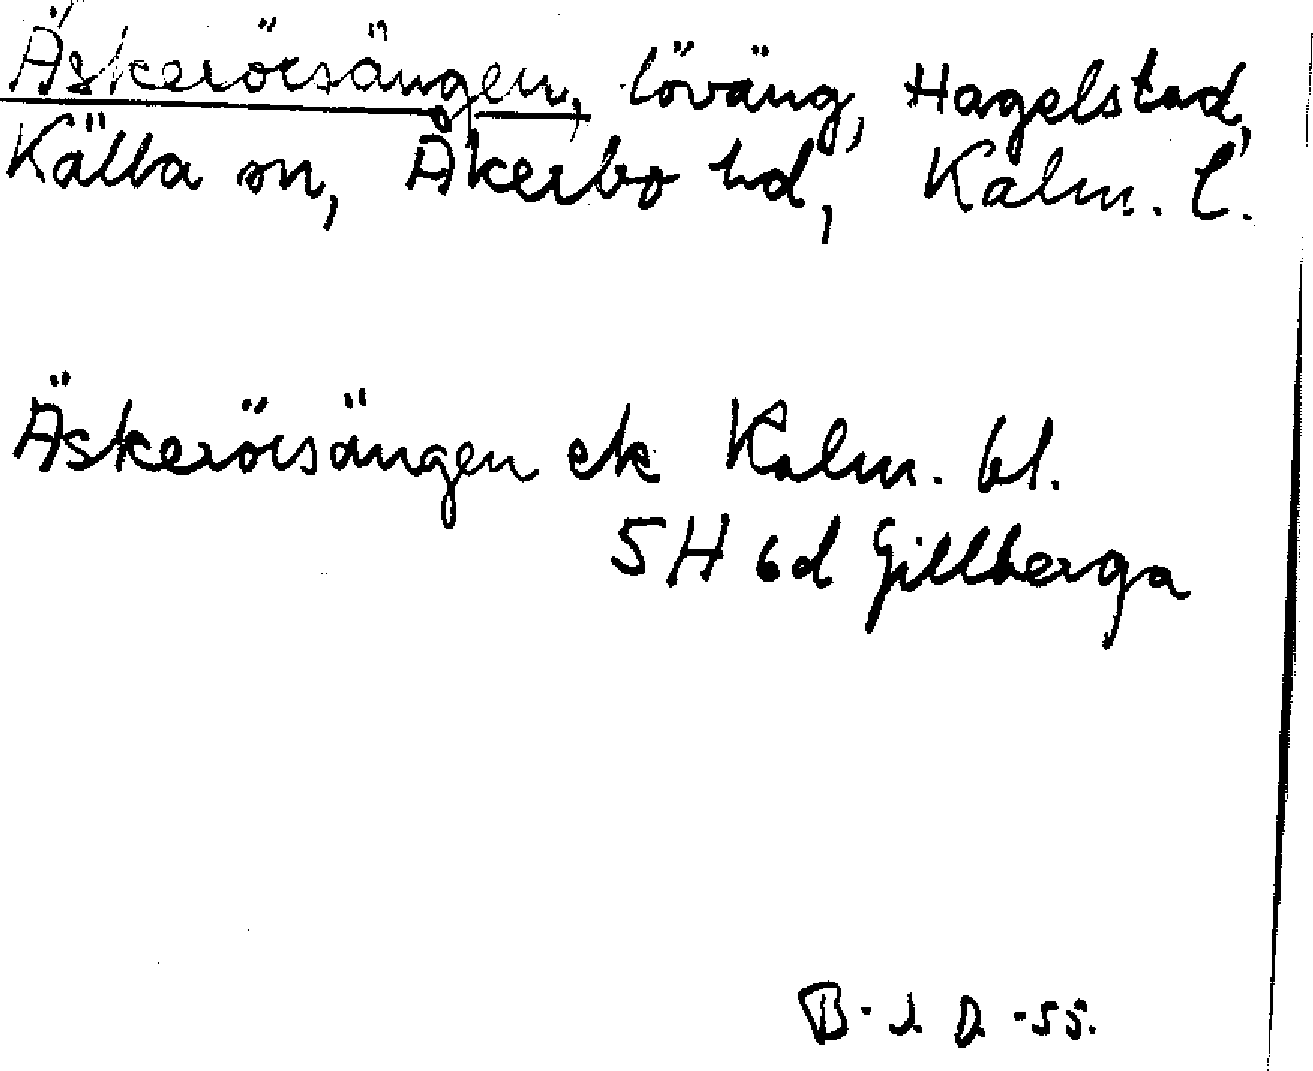 Äskerörsängen, löväng, Hagelstad,
Källa sn, Åkerbo hd, Kalm. l.
Äskerörsängen ek Kalm. bl.
5H 6d Gillberga
B-J. D. -55.